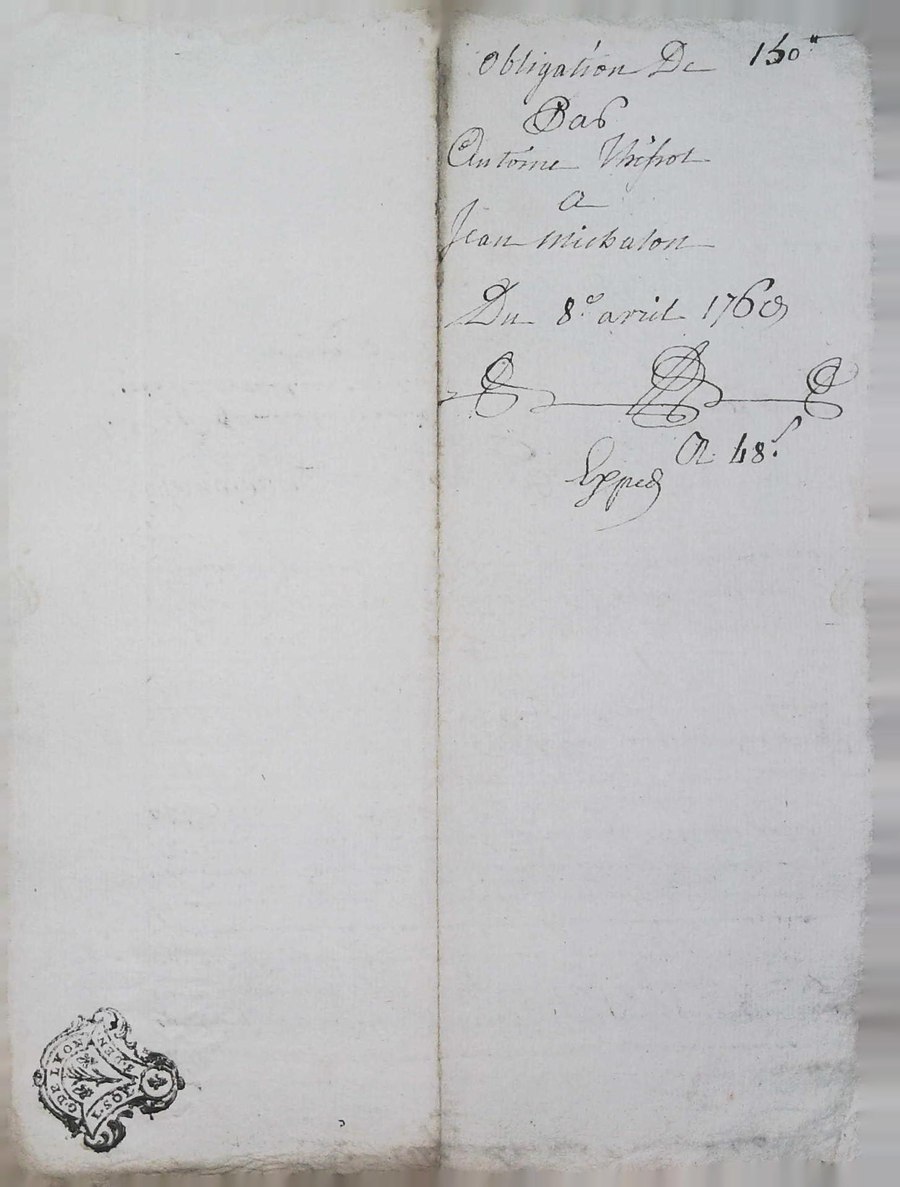 Obligation De 150#
Par
Antoine Thessot
A
Jean Michalon
Du 8e avril 176
R 48s
Exped
G DE LYON